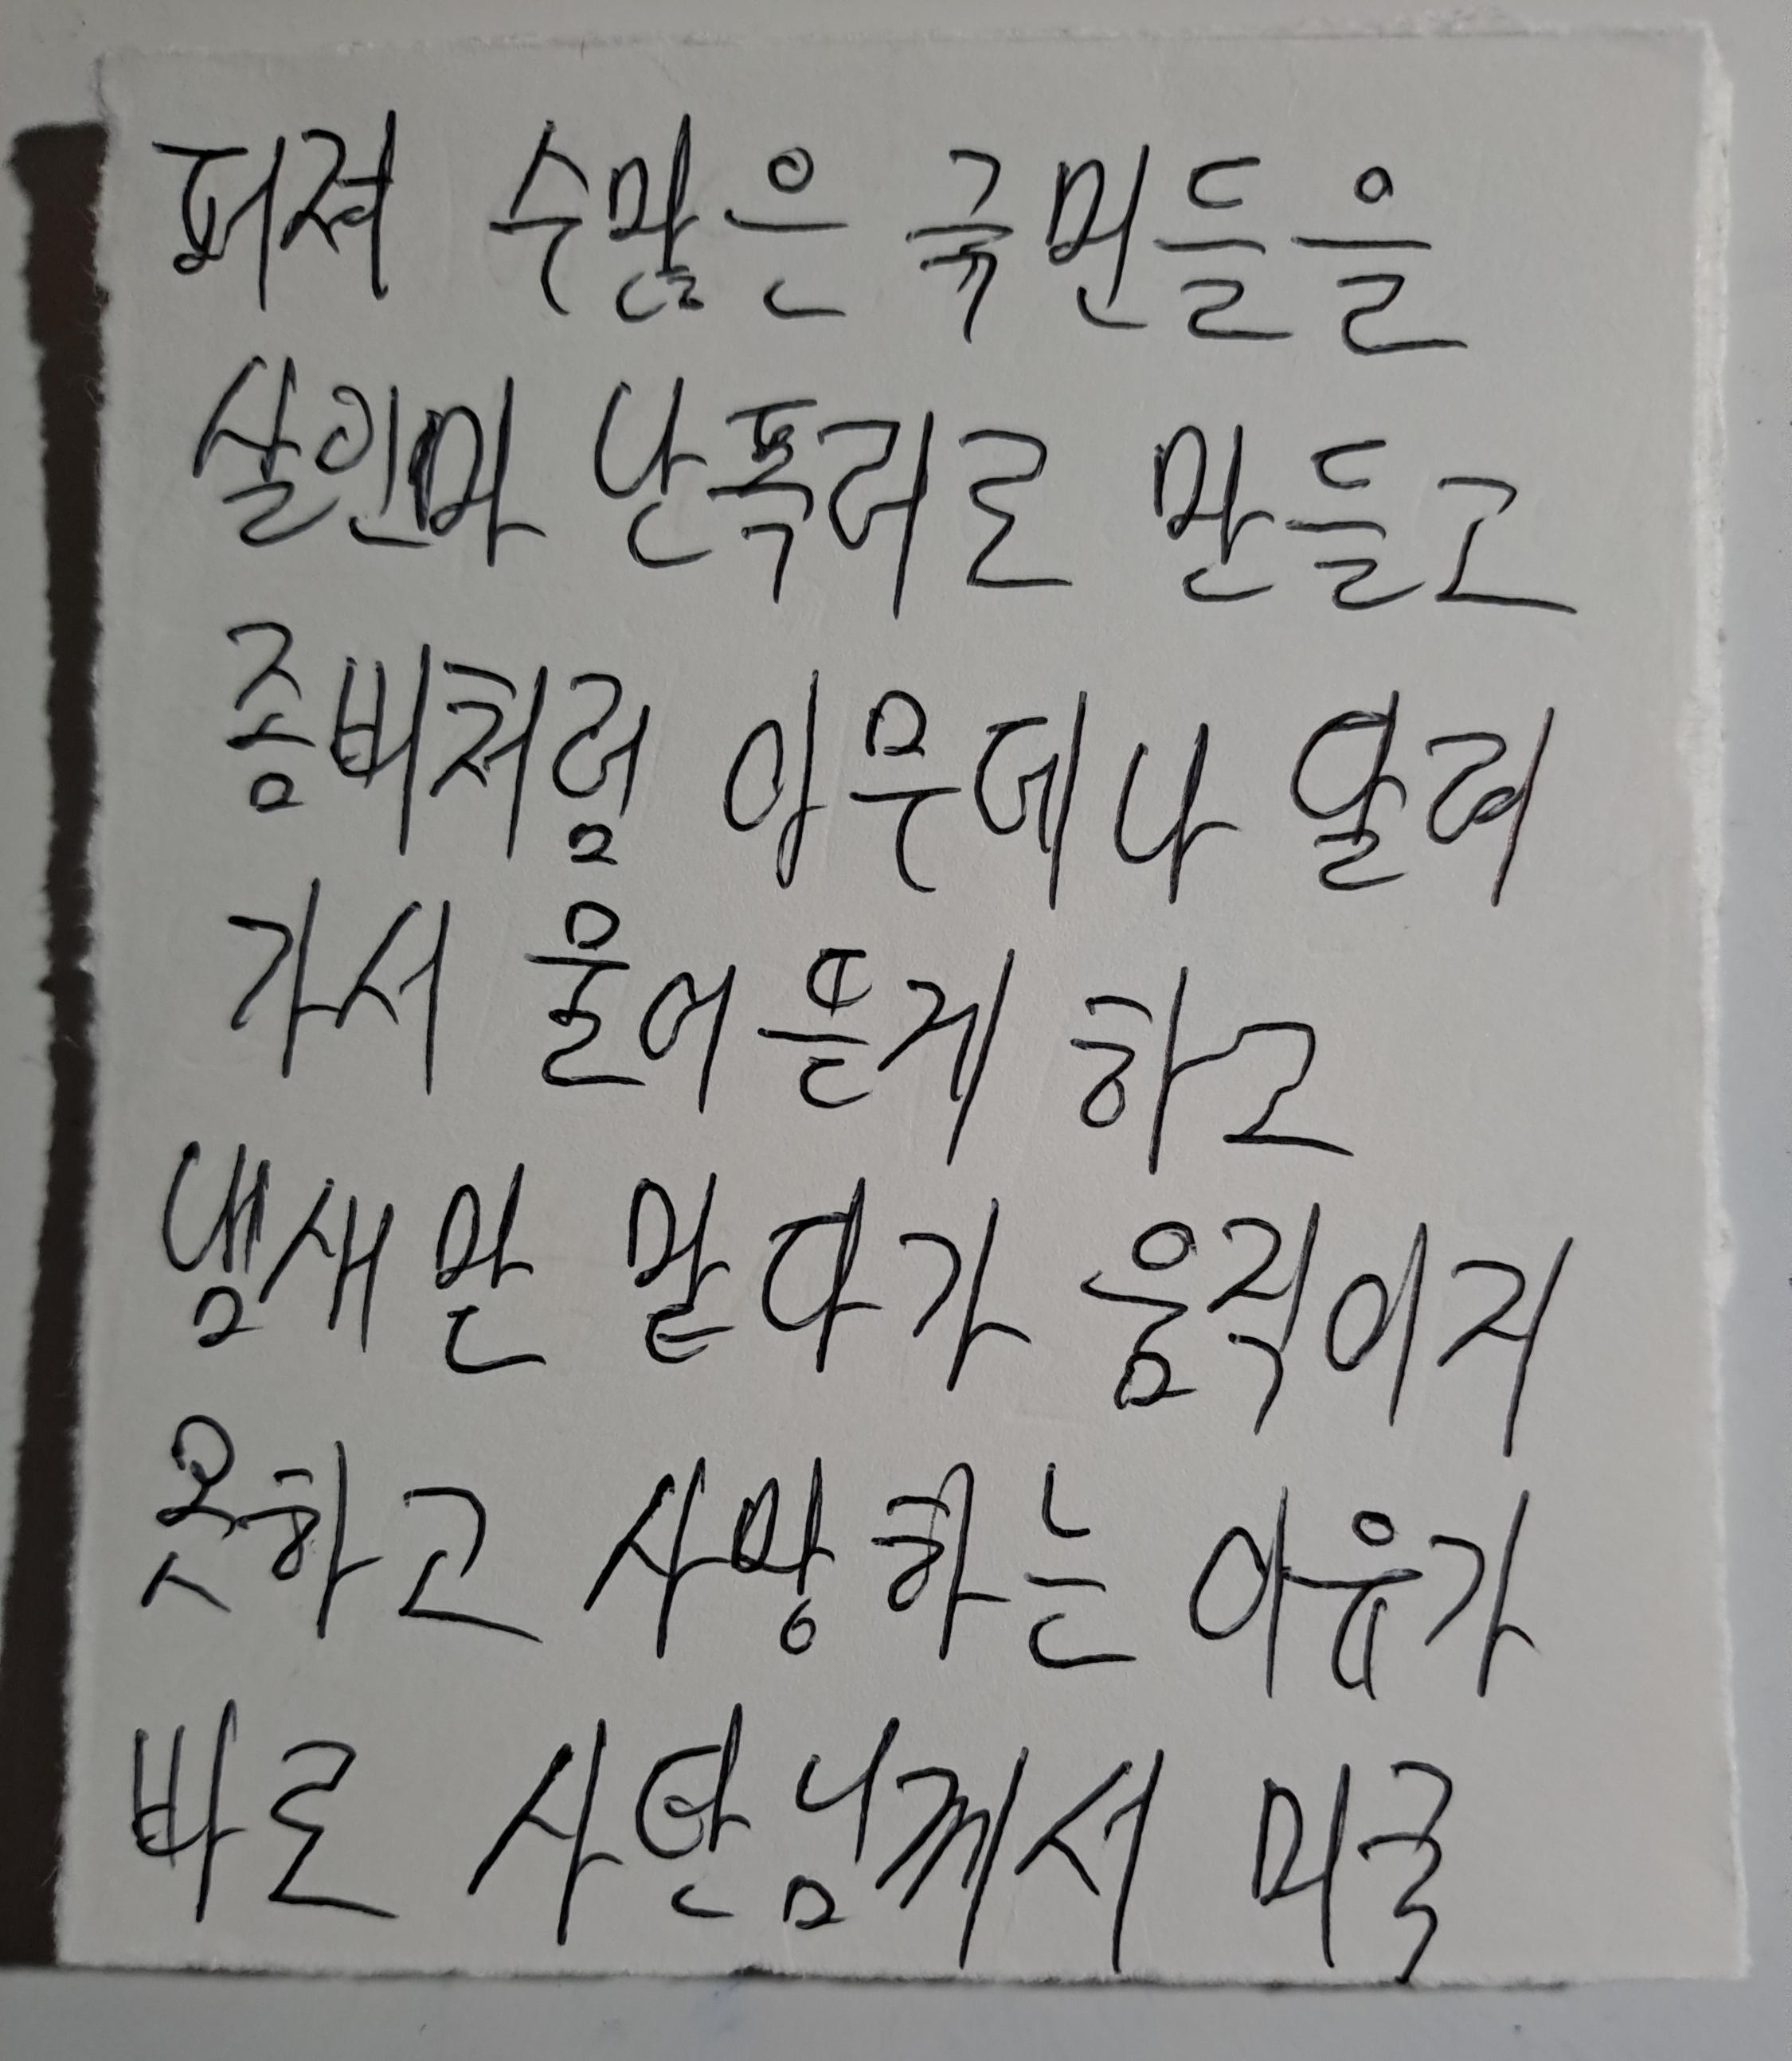 퍼져 수많은 국민들을
살인마 난폭러로 만들고
좀비처럼 아무데나 달려
가서 물어 뜯게 하고
냄새만 맡다가 움직이지
못하고 사망하는 이유가
바로 사단님께서 미국